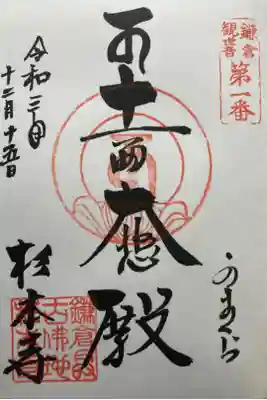 鎌倉
観世音
第一番
かまくら
十一面大悲殿
鎌倉最
古佛地
令和三年
十二月十五日
杉本寺